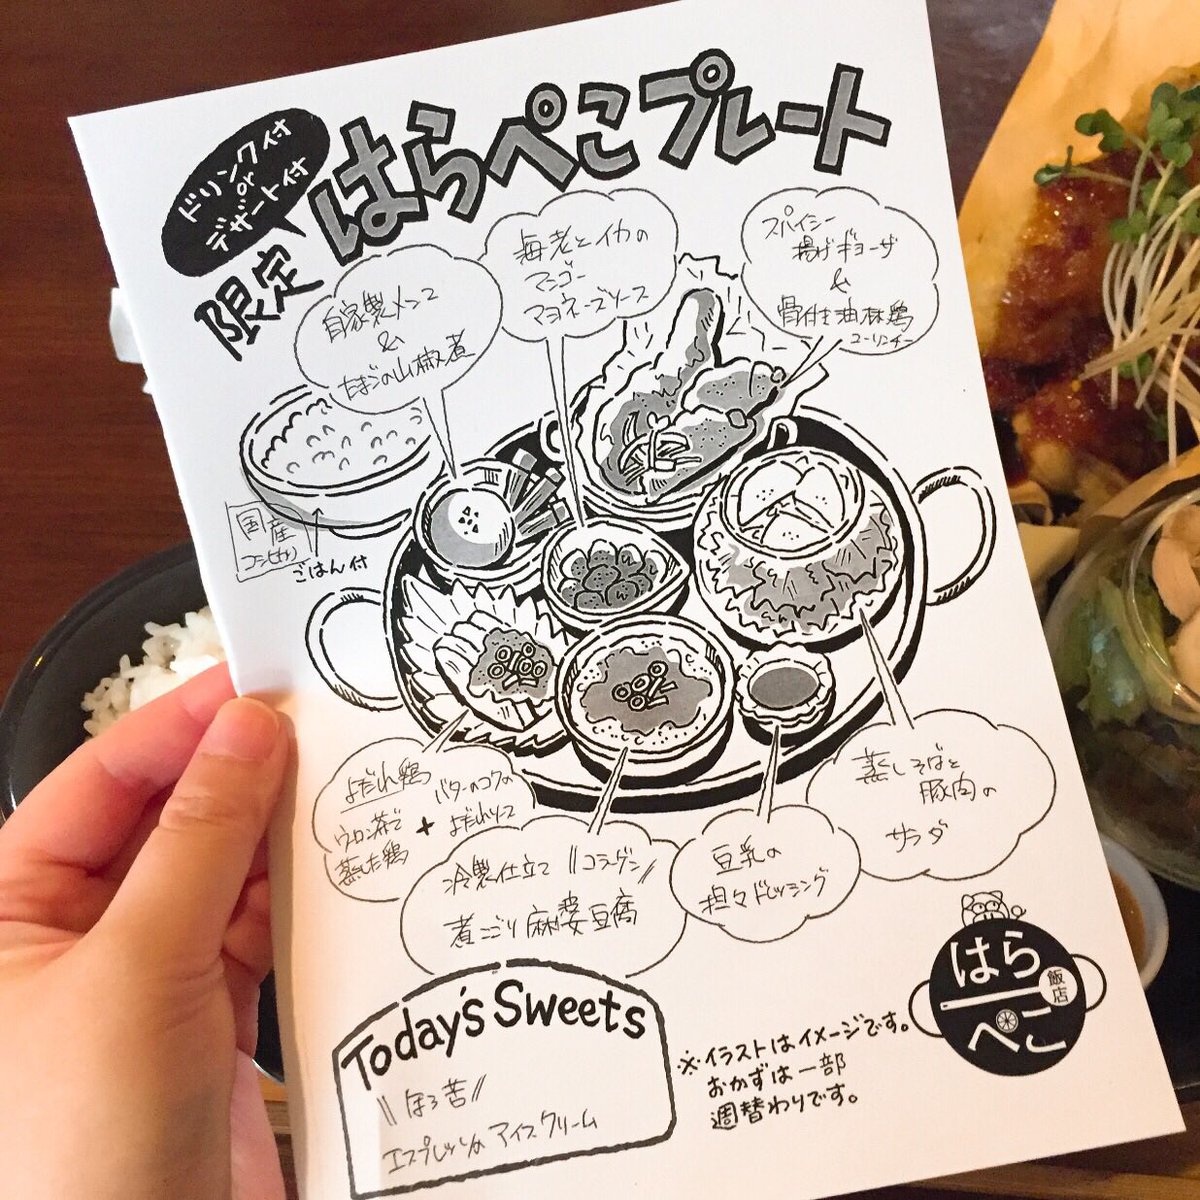 ドリンク付
or
デザート付
限定
はらぺこプレート
自家製メンマ
&
たまごの山椒煮
海老とイカの
マンゴー
マヨネーズソース
スパイシー
揚げギョーザ
&
骨付き油林鶏
ユーリンチー
国産
コシヒカリ
ごはん付
よだれ鶏
ウーロン茶で
蒸した鶏
+
バターのコクの
よだれソース
冷製仕立て \\コラーゲン//
煮こごり麻婆豆腐
豆乳の
担々ドレッシング
蒸しそばと
豚肉の
サラダ
Today's Sweets
\\ほろ苦//
エスプレッソの アイスクリーム
※イラストはイメージです。
おかずは一部
週替わりです。
はら
ぺこ
飯店